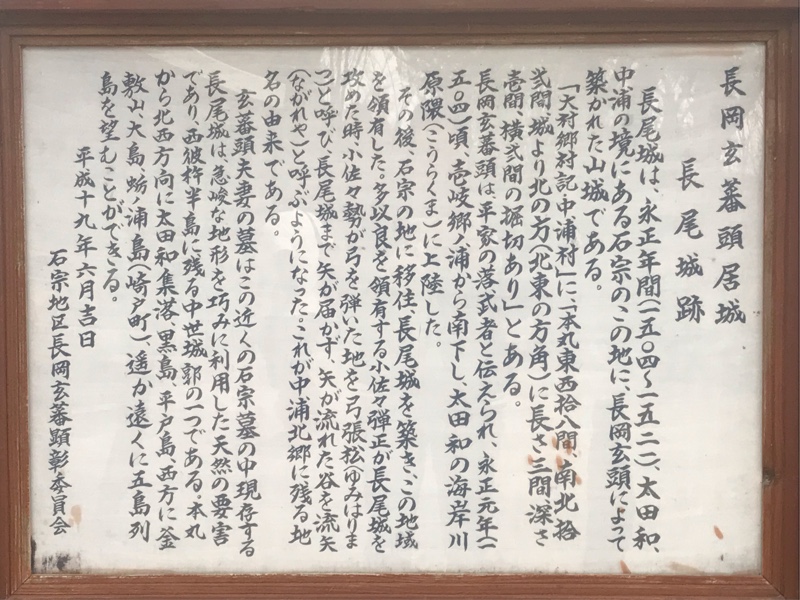 長岡玄蕃頭居城
長尾城跡
長尾城は、永正年間(一五〇四〜一五二一)、太田和、
中浦の境にある石宗のこの地に、長岡玄頭によって
築かれた山城である。
「大村郷村記、中浦村」に、「本丸東西拾八間、南北拾
弐間、城より北の方(北東の方角)に長さ三間、深さ
壱間、横弐間の堀切あり」とある。
長岡玄蕃頭は、平家の落武者と伝えられ、永正元年(一
五〇四)頃、壱岐郷ノ浦から南下し、太田和の海岸川
原隈(こうらくま)に上陸した。
その後、石宗の地に移住、長尾城を築き、この地域
を領有した。多以良を領有する小佐々弾正が長尾城を
攻めた時、小佐々勢が弓を弾いた地を弓張松(ゆみはりま
つ)と呼び、長尾城まで矢が届かず、矢が流れた谷を流矢
(ながれや)と呼ぶようになった。これが中浦北郷に残る地
名の由来である。
玄蕃頭夫妻の墓はこの近くの石宗墓の中現存する
長尾城は、急峻な地形を巧みに利用した天然の要害
であり、西彼杵半島に残る中世城郭の一つである。本丸
から北西方向に太田和集落、黒島、平戸島、西方に釜
敷山、大島、蛎ノ浦島(崎戸町)、遥か遠くに五島列
島を望むことができる。
平成十九年六月吉日
石宗地区長岡玄蕃顕彰委員会